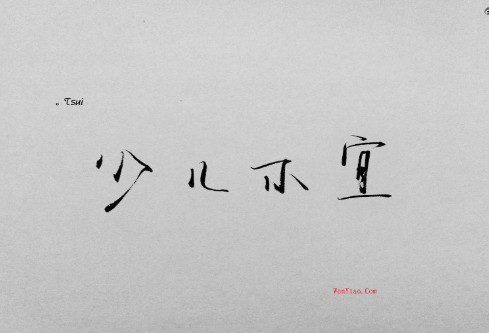 。Tsui
少儿不宜
WooYiao.Com